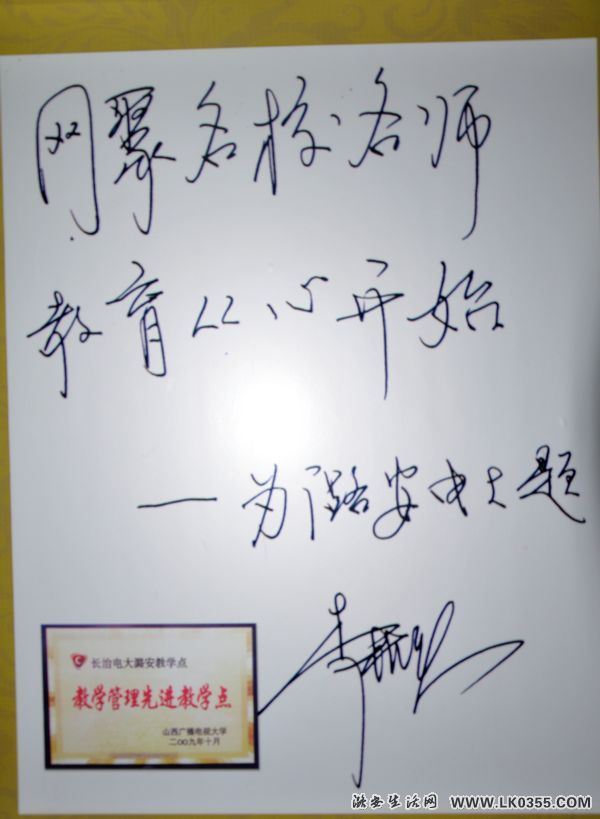 网聚名校名师
教育从心开始
——为潞安电大题
长治电大潞安教学点
教学管理先进教学点
山西广播电视大学
二〇〇九年十月
潞安生活网 WWW.LK0355.COM